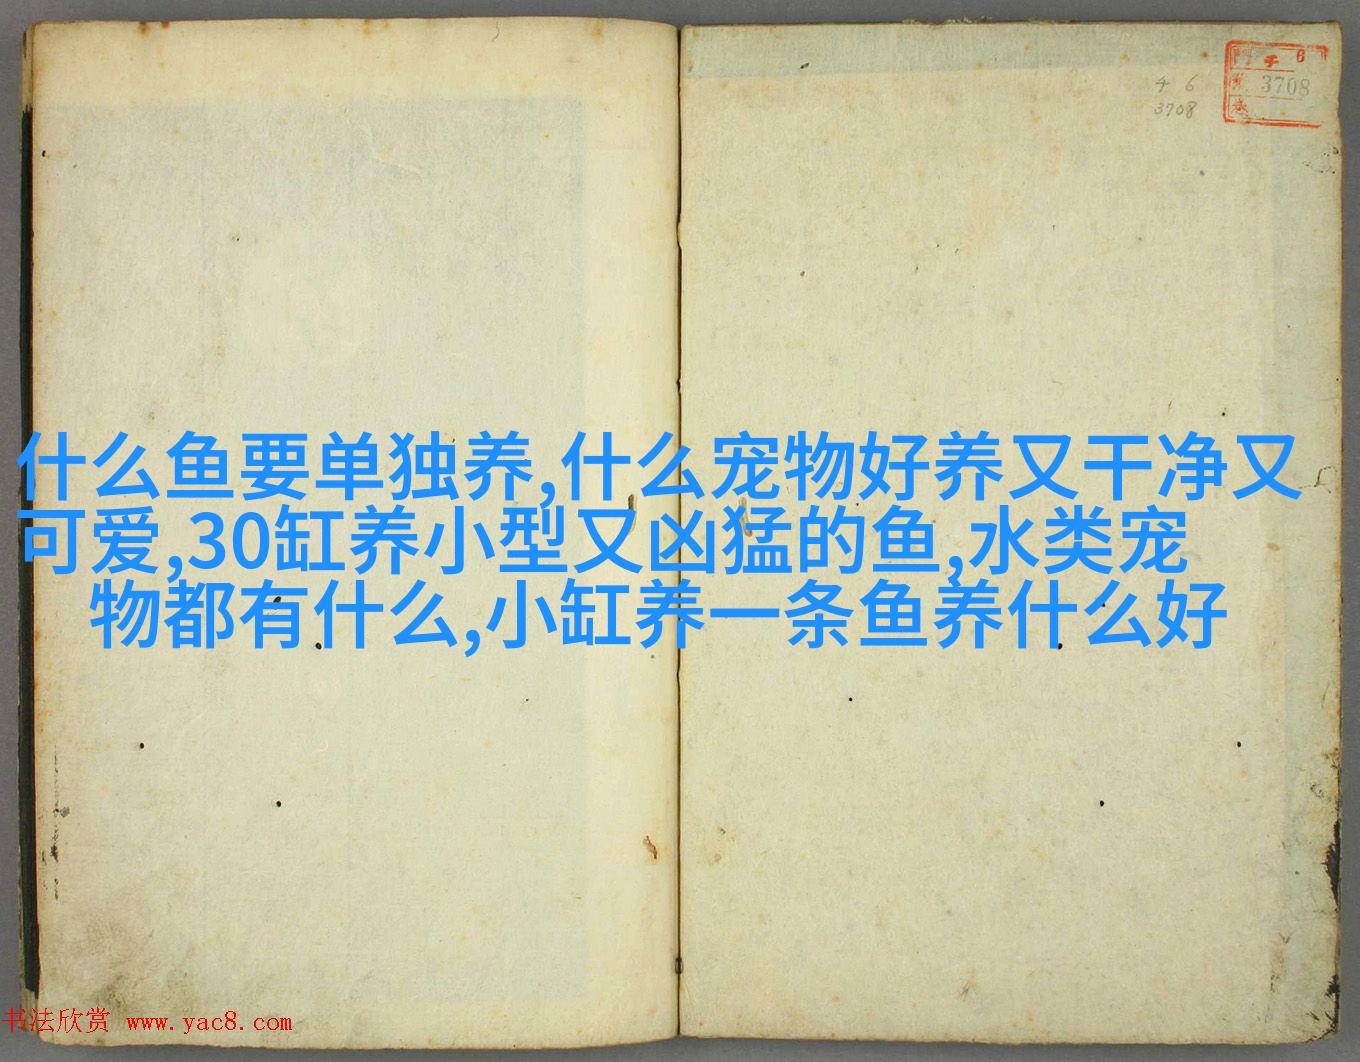 6
3708
4 6
3708
什么鱼要单独养,什么宠物好养又干净又
可爱,30缸养小型又凶猛的鱼,水类宠
物都有什么,小缸养一条鱼养什么好
书法欣赏 www.yac8.com